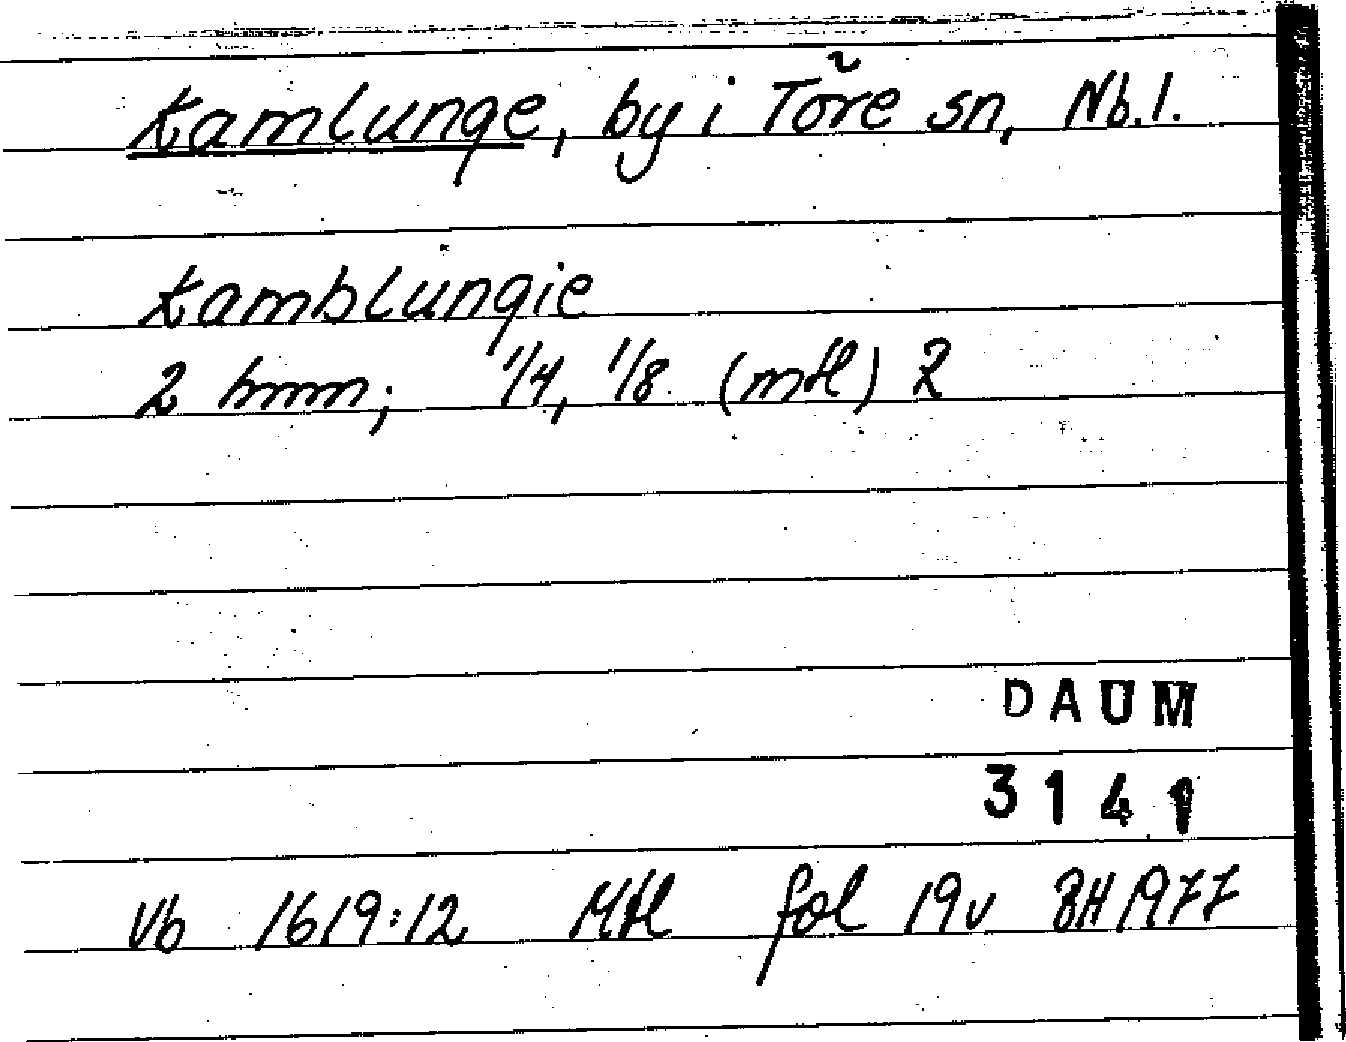 Kamlunge, by i Töre sn, Nb.l.
Kamblungie
2 hmn; 1/4, 1/8 (mtl) 2
DAUM
3141
Vb 1619:12 Mtl fol 19v BH 1977